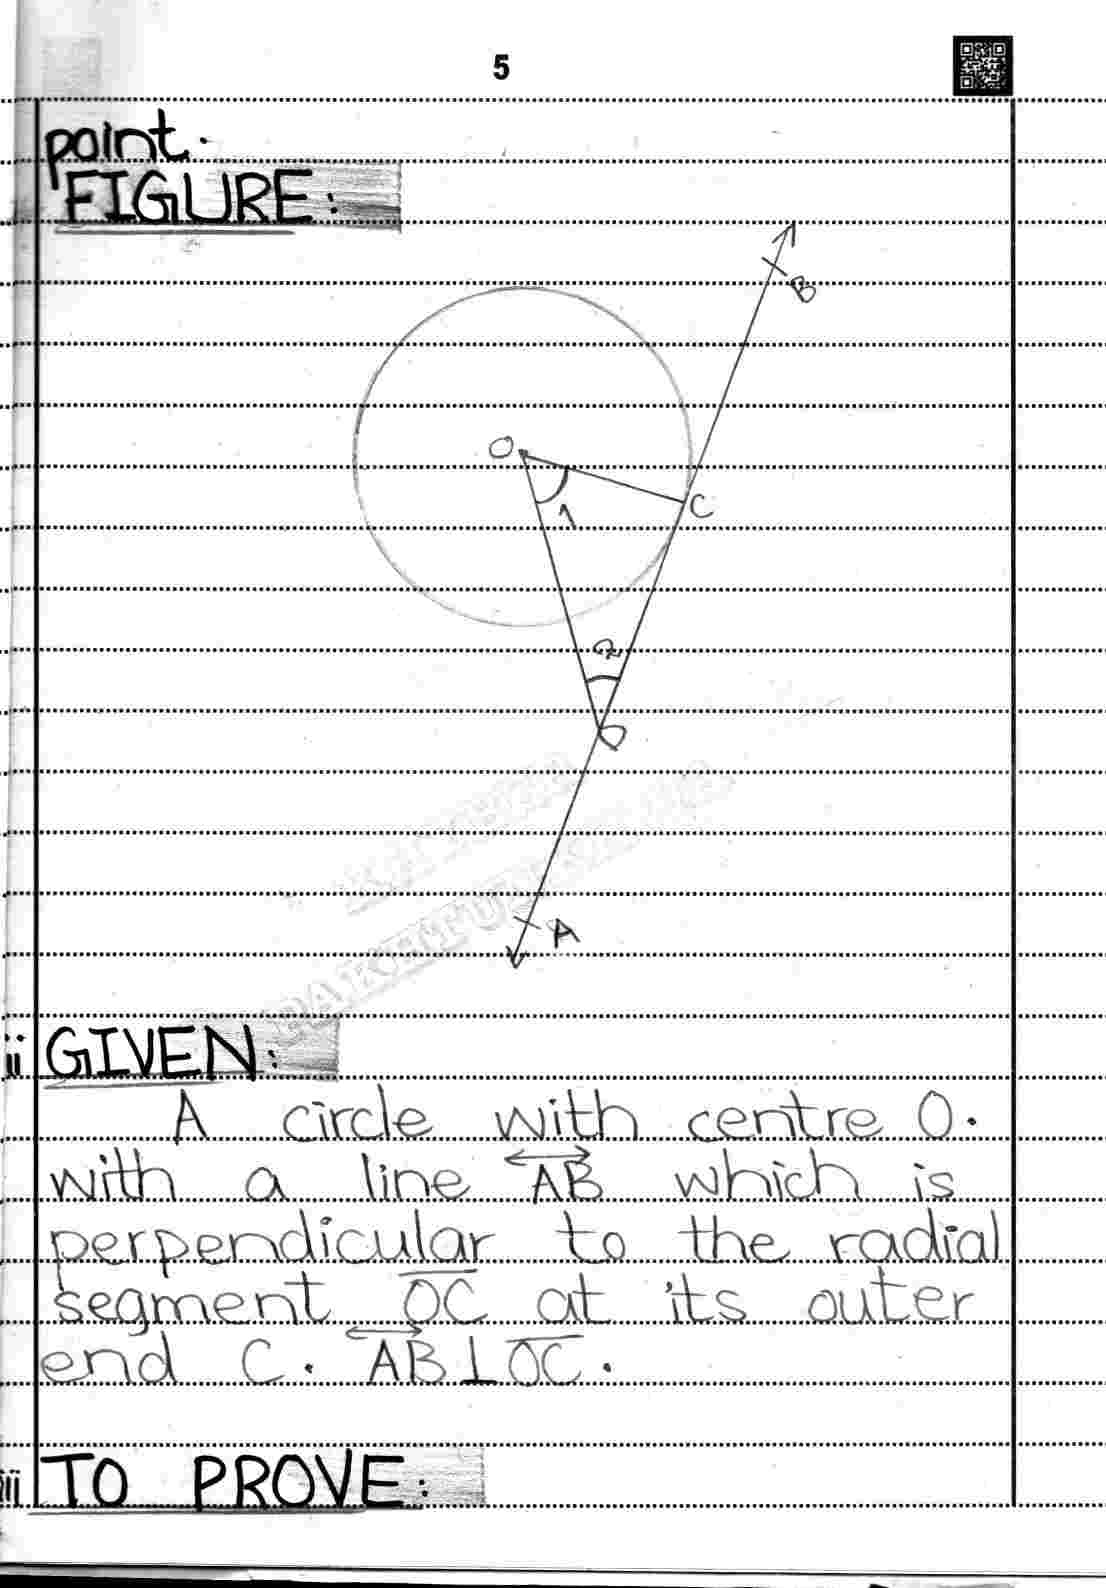 5
point.
FIGURE:
B
O
1
C
2
D
A
KHYBER
PAKHTUNKHWA
ii GIVEN:
A circle with centre O.
with a line AB which is
perpendicular to the radial
segment OC at its outer
end C. AB⊥OC.
iii TO PROVE: